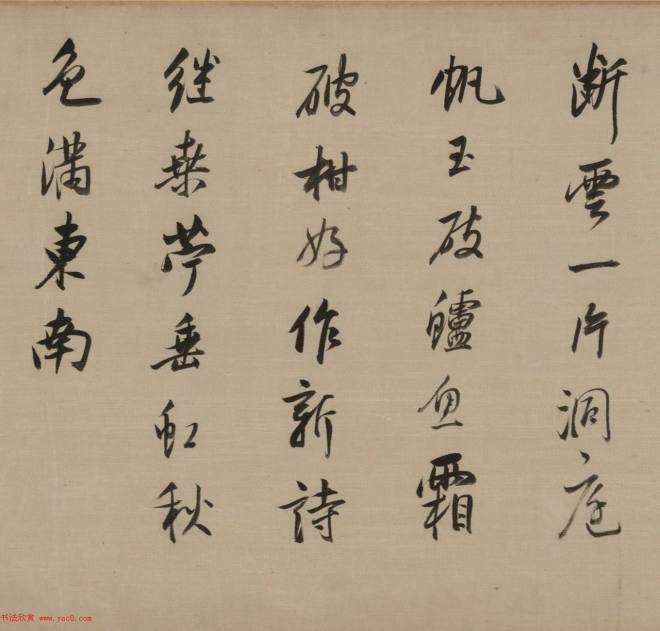 断雲一片洞庭
帆玉破鱸魚霜
破柑好作新詩
継桒苧垂虹秋
色满東南
书法欣赏 www.yac8.com